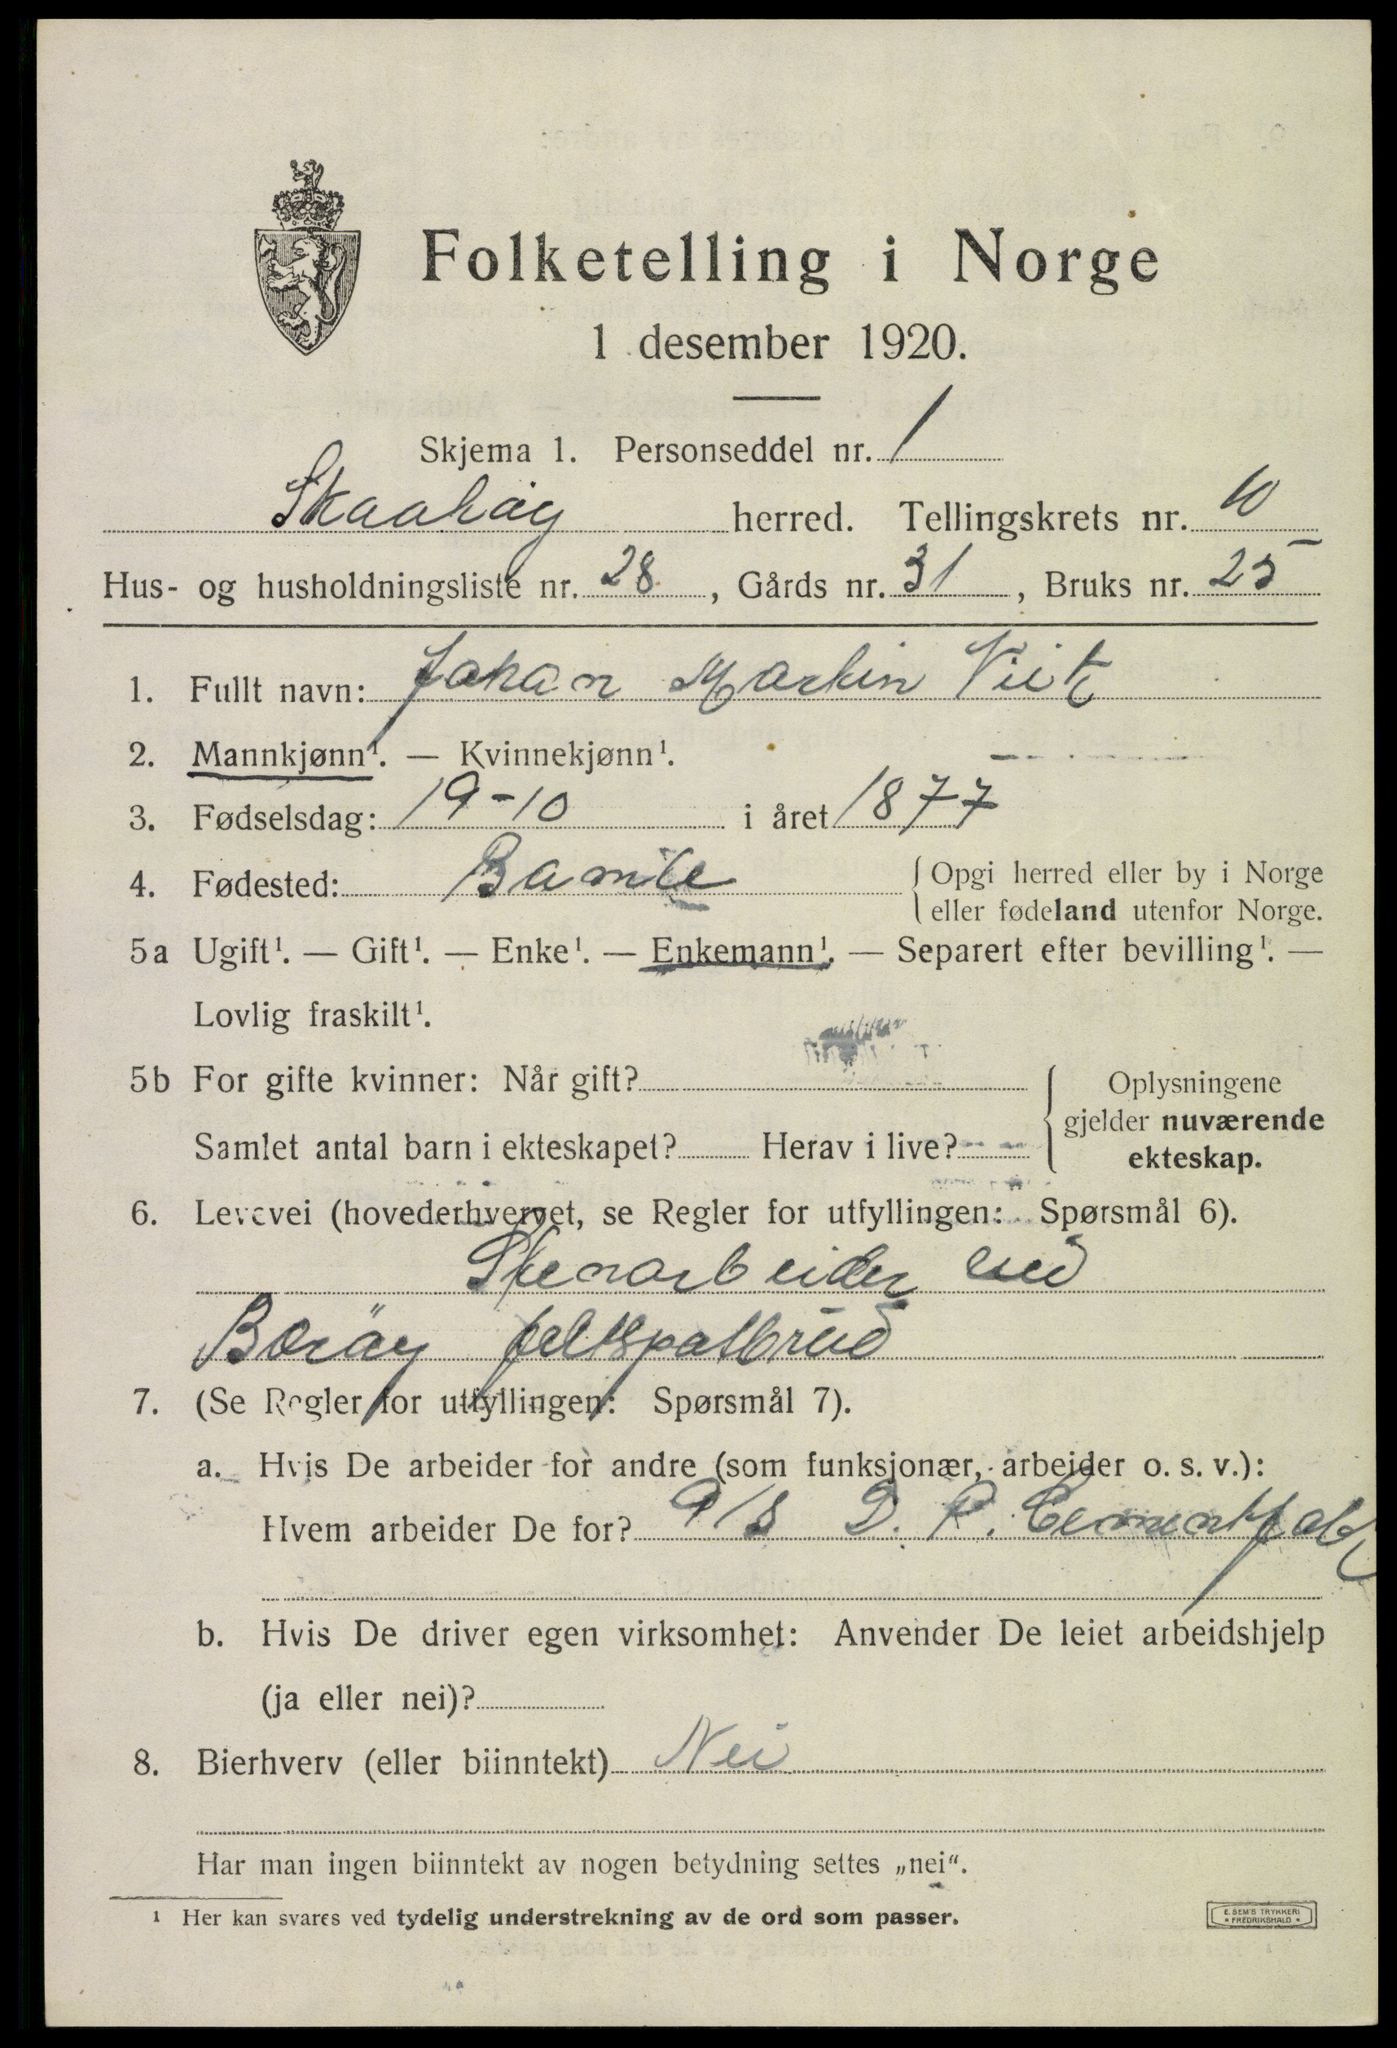 Folketelling i Norge
1 desember 1920.
Skjema 1. Personseddel nr. 1
Skaatøy herred. Tellingskrets nr. 10
Hus- og husholdningsliste nr. 28, Gårds nr. 31, Bruks nr. 25
1. Fullt navn: Johan Martin
2. Mannkjønn¹. — Kvinnekjønn¹.
3. Fødselsdag: 19-10 i året 1877
4. Fødested: Bamle { Opgi herred eller by i Norge
eller fødeland utenfor Norge.
5a Ugift¹. — Gift¹. — Enke¹. — Enkemann¹. — Separert efter bevilling¹. —
Lovlig fraskilt¹.
5b For gifte kvinner: Når gift?
Samlet antal barn i ekteskapet? Herav i live?
Oplysningene
gjelder nuværende
ekteskap.
6. Levevei (hovederhvervet, se Regler for utfyllingen: Spørsmål 6).
Stenarbeider ved
Bærøy feltspatbrud
7. (Se Regler for utfyllingen: Spørsmål 7).
a. Hvis De arbeider for andre (som funksjonær, arbeider o. s. v.):
Hvem arbeider De for? A/S D. P. Cementfabr
b. Hvis De driver egen virksomhet: Anvender De leiet arbeidshjelp
(ja eller nei)?
8. Bierhverv (eller biinntekt) Nei
Har man ingen biinntekt av nogen betydning settes „nei“.
¹ Her kan svares ved tydelig understrekning av de ord som passer.
E. SEM'S TRYKKERI
FREDRIKSHALD